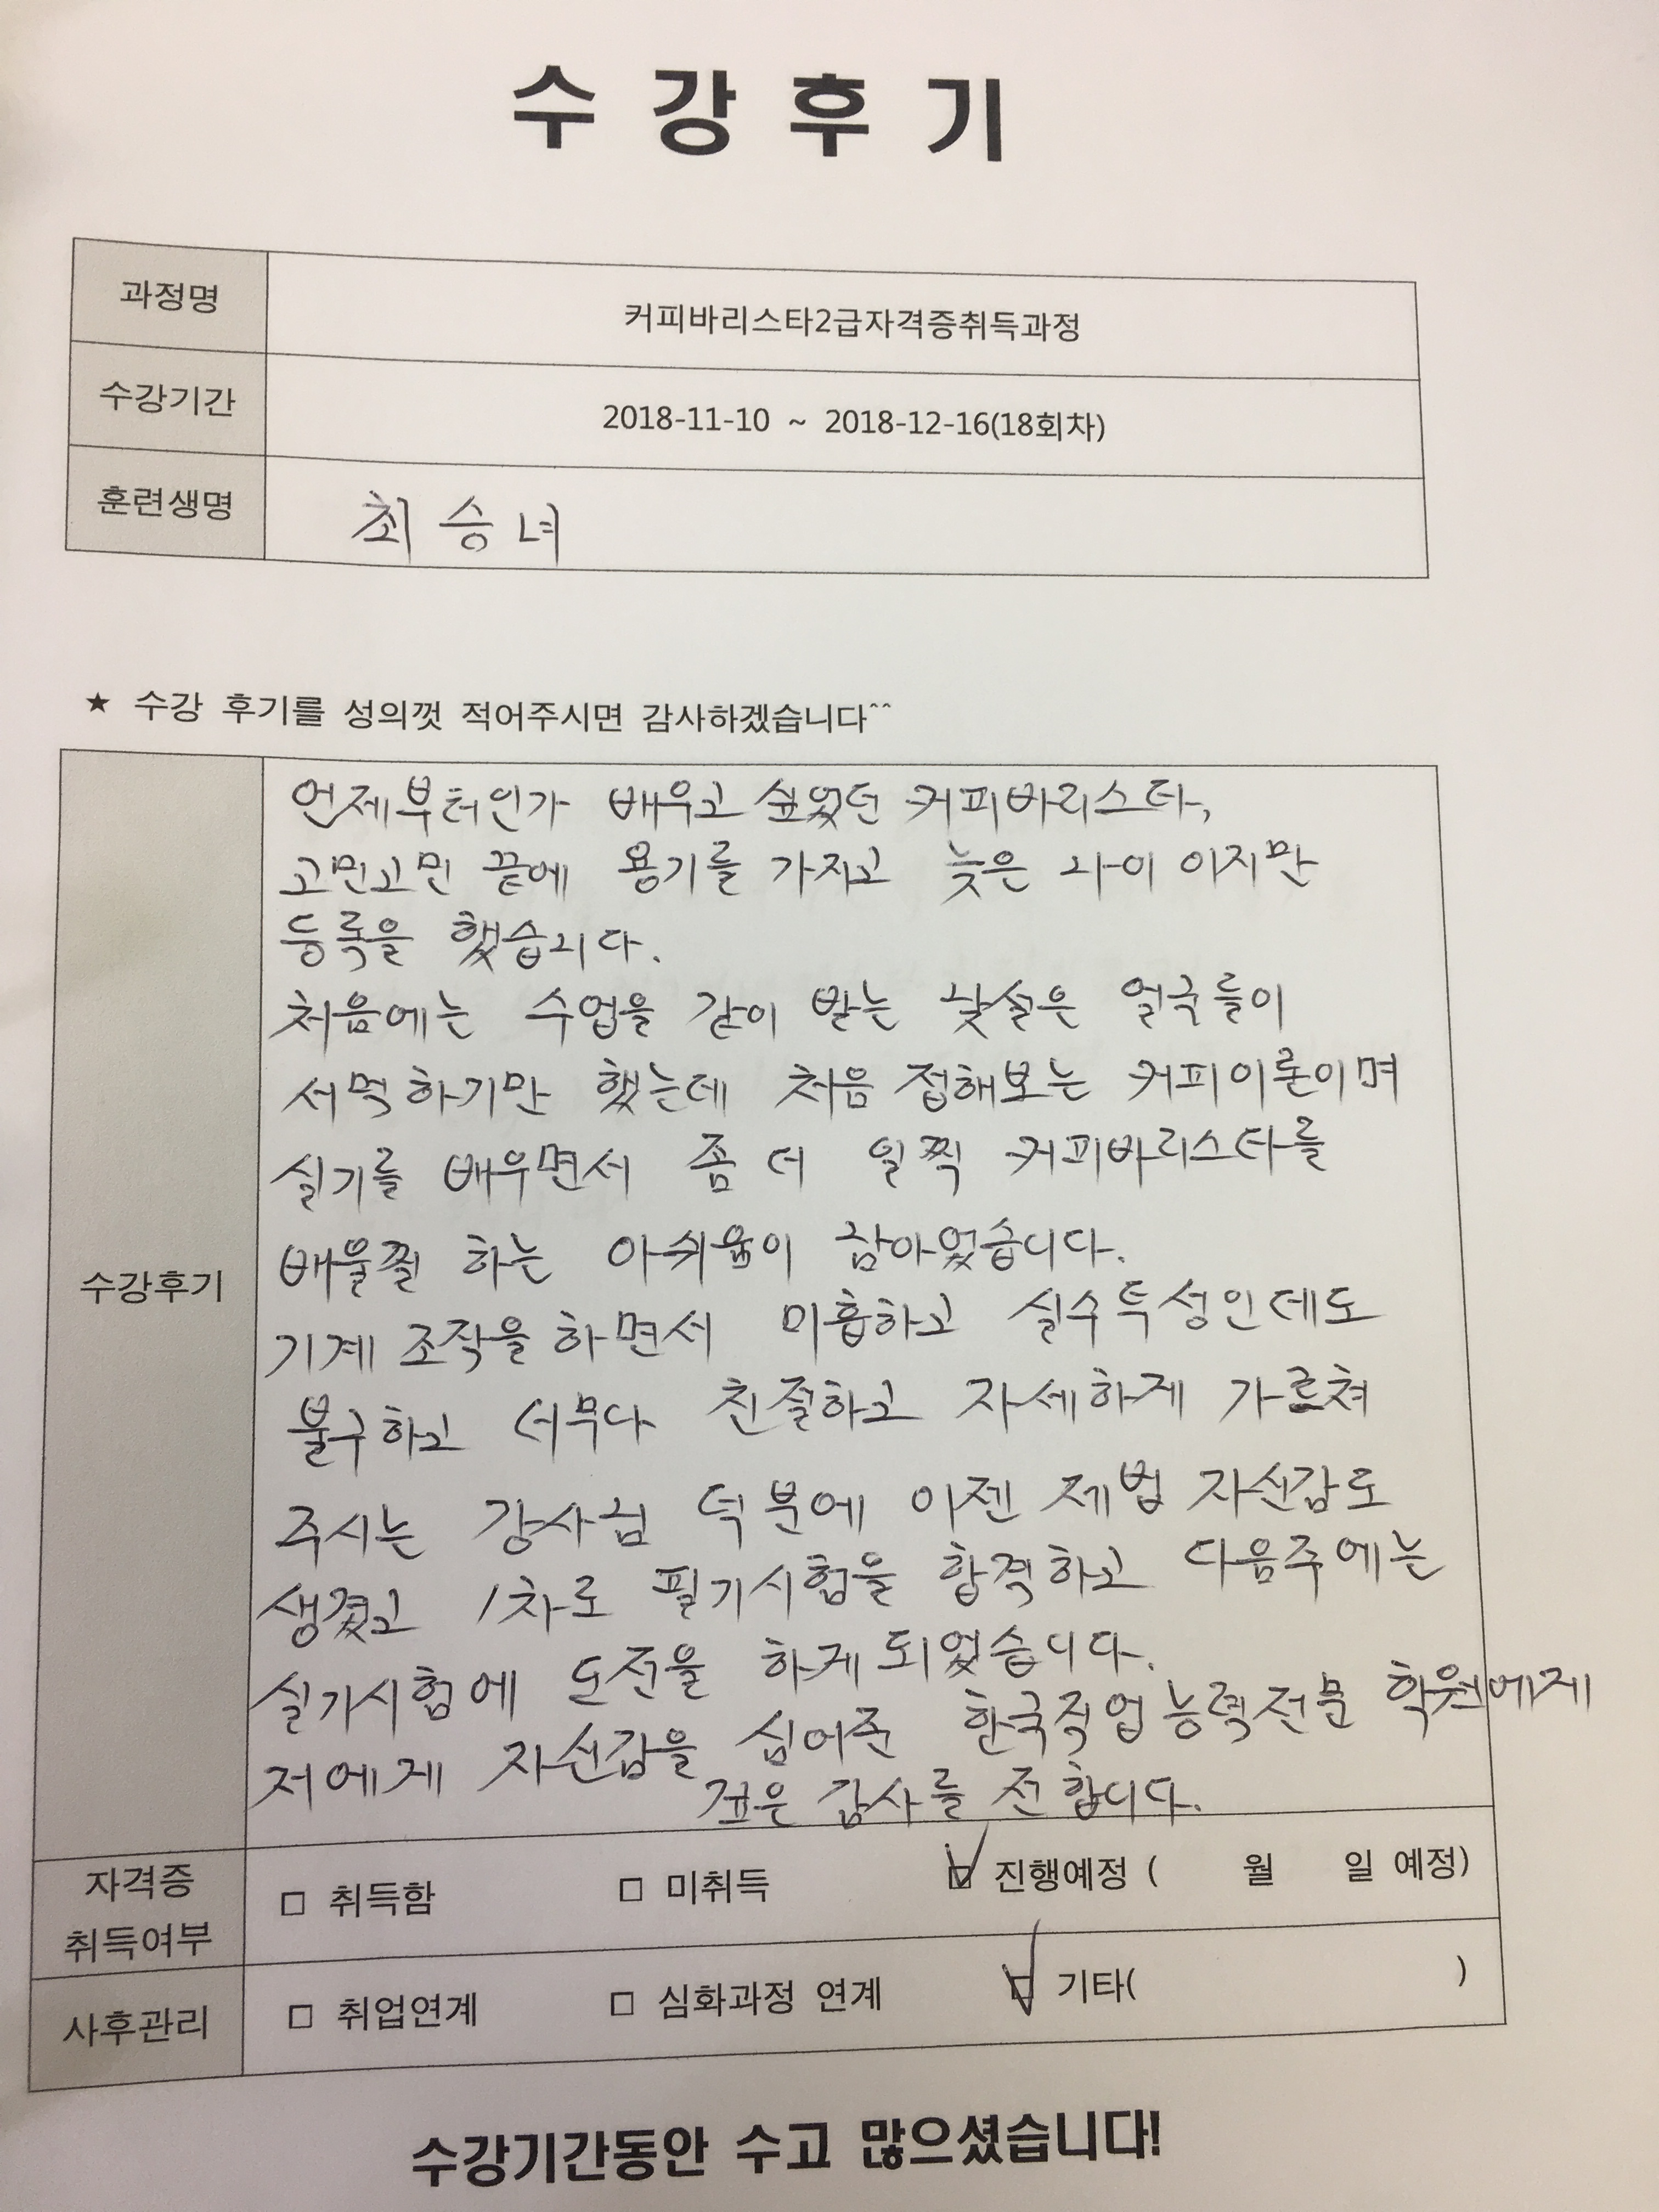 수강후기
과정명 커피바리스타2급자격증취득과정
수강기간 2018-11-10 ~ 2018-12-16(18회차)
훈련생명 최승녀
★ 수강 후기를 성의껏 적어주시면 감사하겠습니다^^
수강후기
언제부터인가 배우고 싶었던 커피바리스타,
고민고민 끝에 용기를 가지고 늦은 나이 이지만
등록을 했습니다.
처음에는 수업을 같이 받는 낯설은 얼굴들이
서먹하기만 했는데 처음 접해보는 커피이론이며
실기를 배우면서 좀 더 일찍 커피바리스타를
배울껄 하는 아쉬움이 남아있었습니다.
기계 조작을 하면서 미흡하고 실수투성인데도
불구하고 너무다 친절하고 자세하게 가르쳐
주시는 강사님 덕분에 이젠 제법 자신감도
생겼고 1차로 필기시험을 합격하고 다음주에는
실기시험에 도전을 하게 되었습니다.
저에게 자신감을 심어준 한국직업능력전문 학원에게
깊은 감사를 전합니다.
자격증
취득여부
□ 취득함 □ 미취득 ☑ 진행예정 ( 월 일 예정)
사후관리 □ 취업연계 □ 심화과정 연계 ☑ 기타( )
수강기간동안 수고 많으셨습니다!